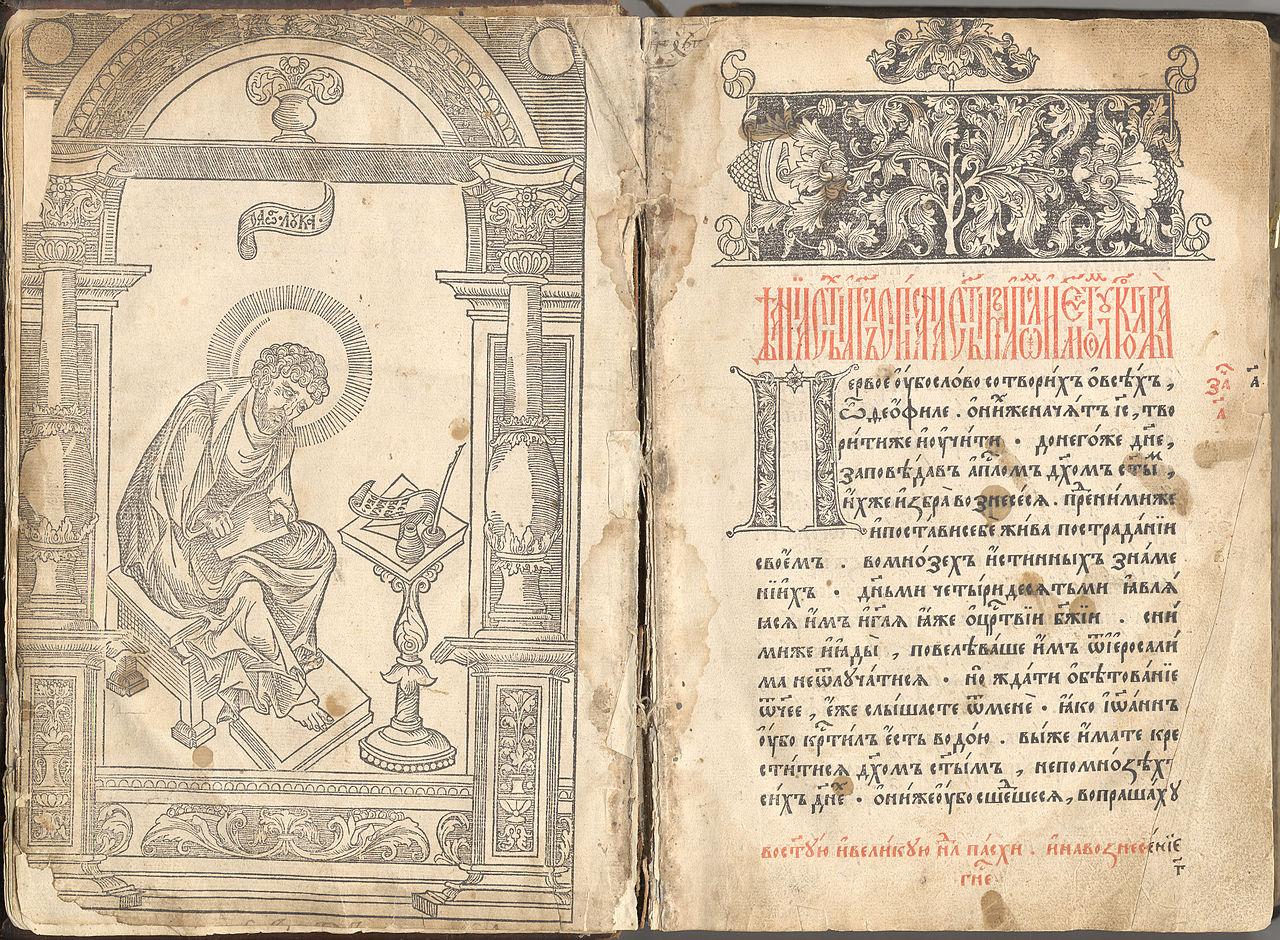 Первое оубо слово сотворихъ ѡ всѣхъ ,
ѽ Ѳеѡфиле . ѡ нихже начатъ і҃с , тво
рити же и оучити · до негоже дн҃е ,
заповѣдавъ ап҃лѡмъ дх҃омъ ст҃ым ,
ихже избра вознесеся . пред ними же
и постави себе жива по страданіи
своемъ . во мнозехъ истинныхъ зна́ме
ніихъ · дн҃ьми четыридесятьми ꙗвлѧ
ꙗся имъ и гл҃я ꙗже ѡ цр҃твіи бж҃іи . с ни
миже и ꙗды̀ , повелѣваше имъ ѿ іеросали
ма не ѿлучатися · но ждати обѣтованіе
ѿчее , еже слышасте ѿ мене · ꙗко іѡаннъ
оубо кр҃тилъ есть водою . вы же имате кре
ститися дх҃омъ ст҃ымъ , не по мнозѣхъ
сихъ дн҃е · ѡни же оубо сшедшеся , вопрашахꙋ
во ст҃ую и великую нл҃ пасхи . и на вознесеніе
гн҃е